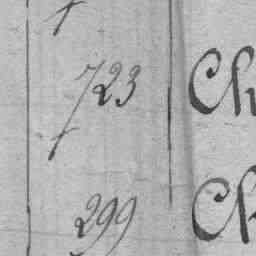 723 Ch
299 Ch